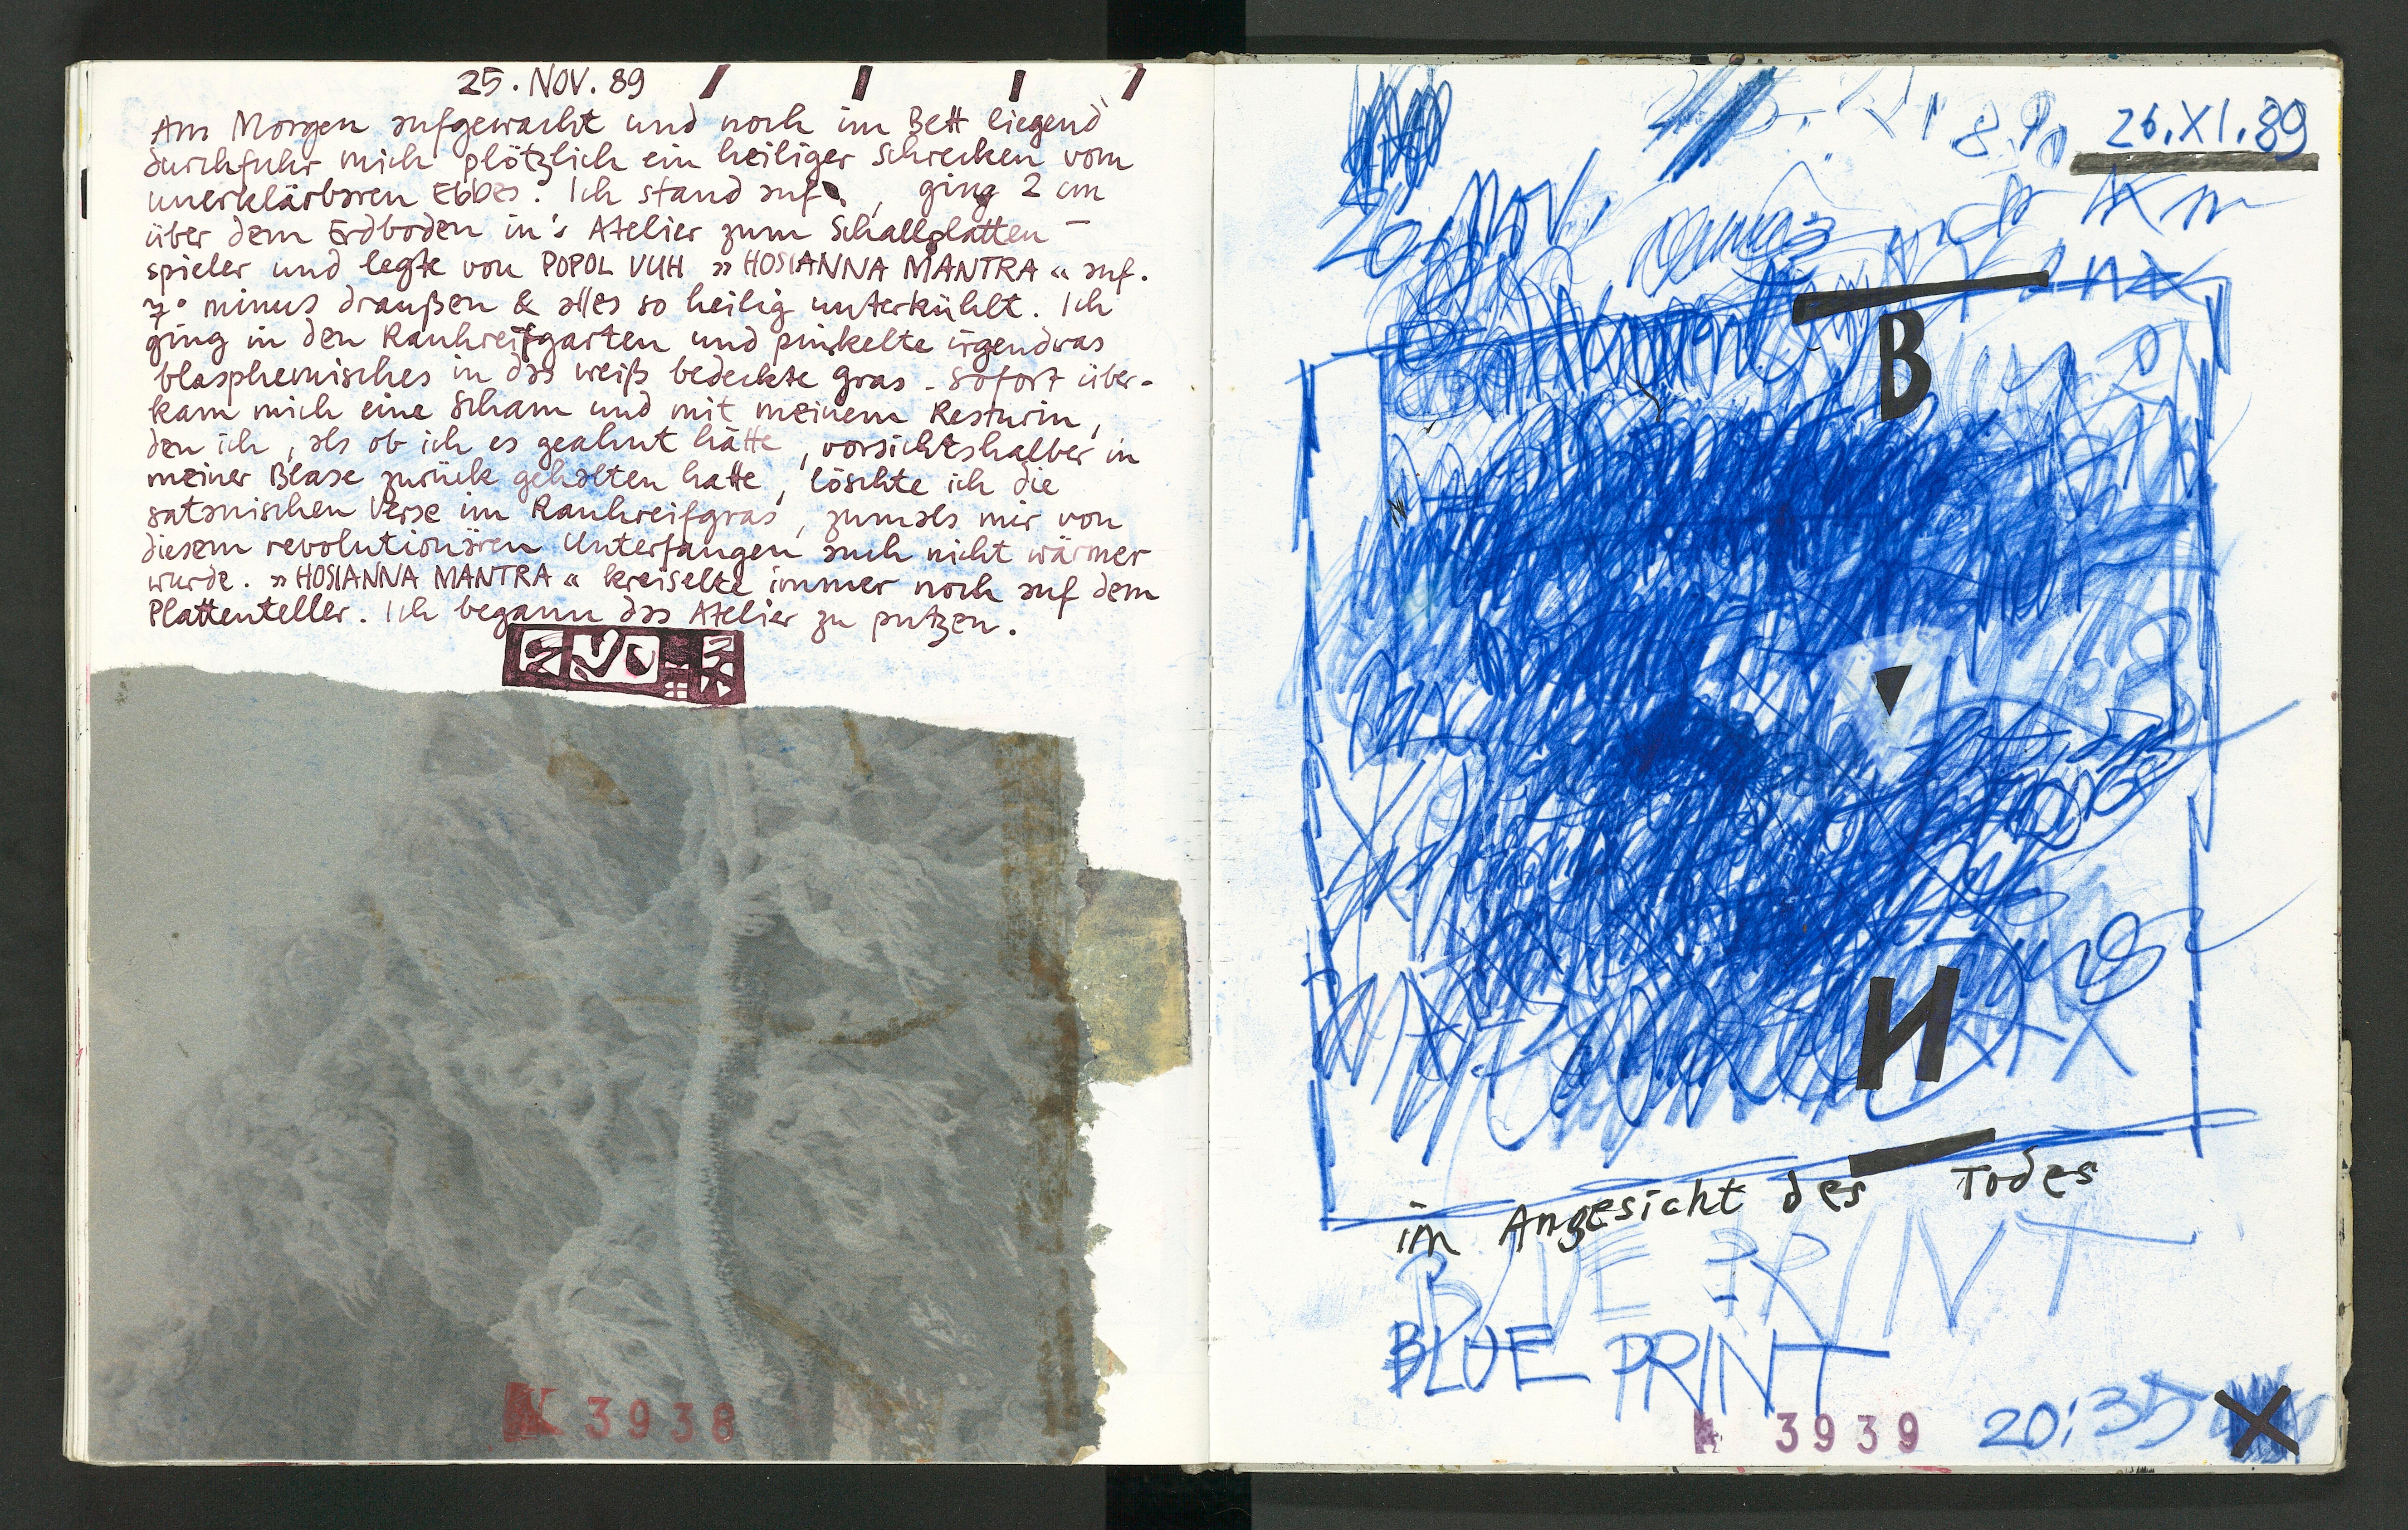 25. NOV. 89
Am Morgen aufgewacht und noch im Bett liegend
durchfuhr mich plötzlich ein heiliger Schrecken vom
unerklärbaren Ebbes. Ich stand auf, ging 2 cm
über dem Erdboden in's Atelier zum Schallplatten-
spieler und legte von POPOL VUH »HOSIANNA MANTRA« auf.
7° minus draußen & alles so heilig unterkühlt. Ich
ging in den Rauhreifgarten und pinkelte irgendwas
blasphemisches in das weiß bedeckte gras - Sofort über-
kam mich eine Scham und mit meinem Resturin,
den ich, als ob ich es geahnt hätte, vorsichtshalber in
meiner Blase zurück gehalten hatte, löschte ich die
satanischen Verse im Rauhreifgras, zumals mir von
diesem revolutionären Unterfangen auch nicht wärmer
wurde. »HOSIANNA MANTRA« kreiselte immer noch auf dem
Plattenteller. Ich begann das Atelier zu putzen.
K 3938
26.XI.89
26. NOV.
B
И
im Angesicht des Todes
BLUE PRINT
BLUE PRINT
3939
20:35
X